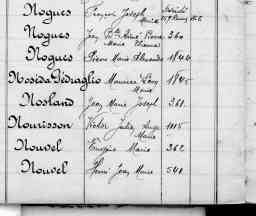 Nogues François Joseph
Marie
Nogues Jean Bte Aimé Pierre 360
Marie Etienne
Nogues Pierre Marie Alexandre 1844
Maurice Léon 1845
Marie
Nosland Jean Marie Joseph 361
Nourisson Victor Julien Ange 1015
Marie
Nouvel Eugène Marie 362
Nouvel Henri Jean Marie 541